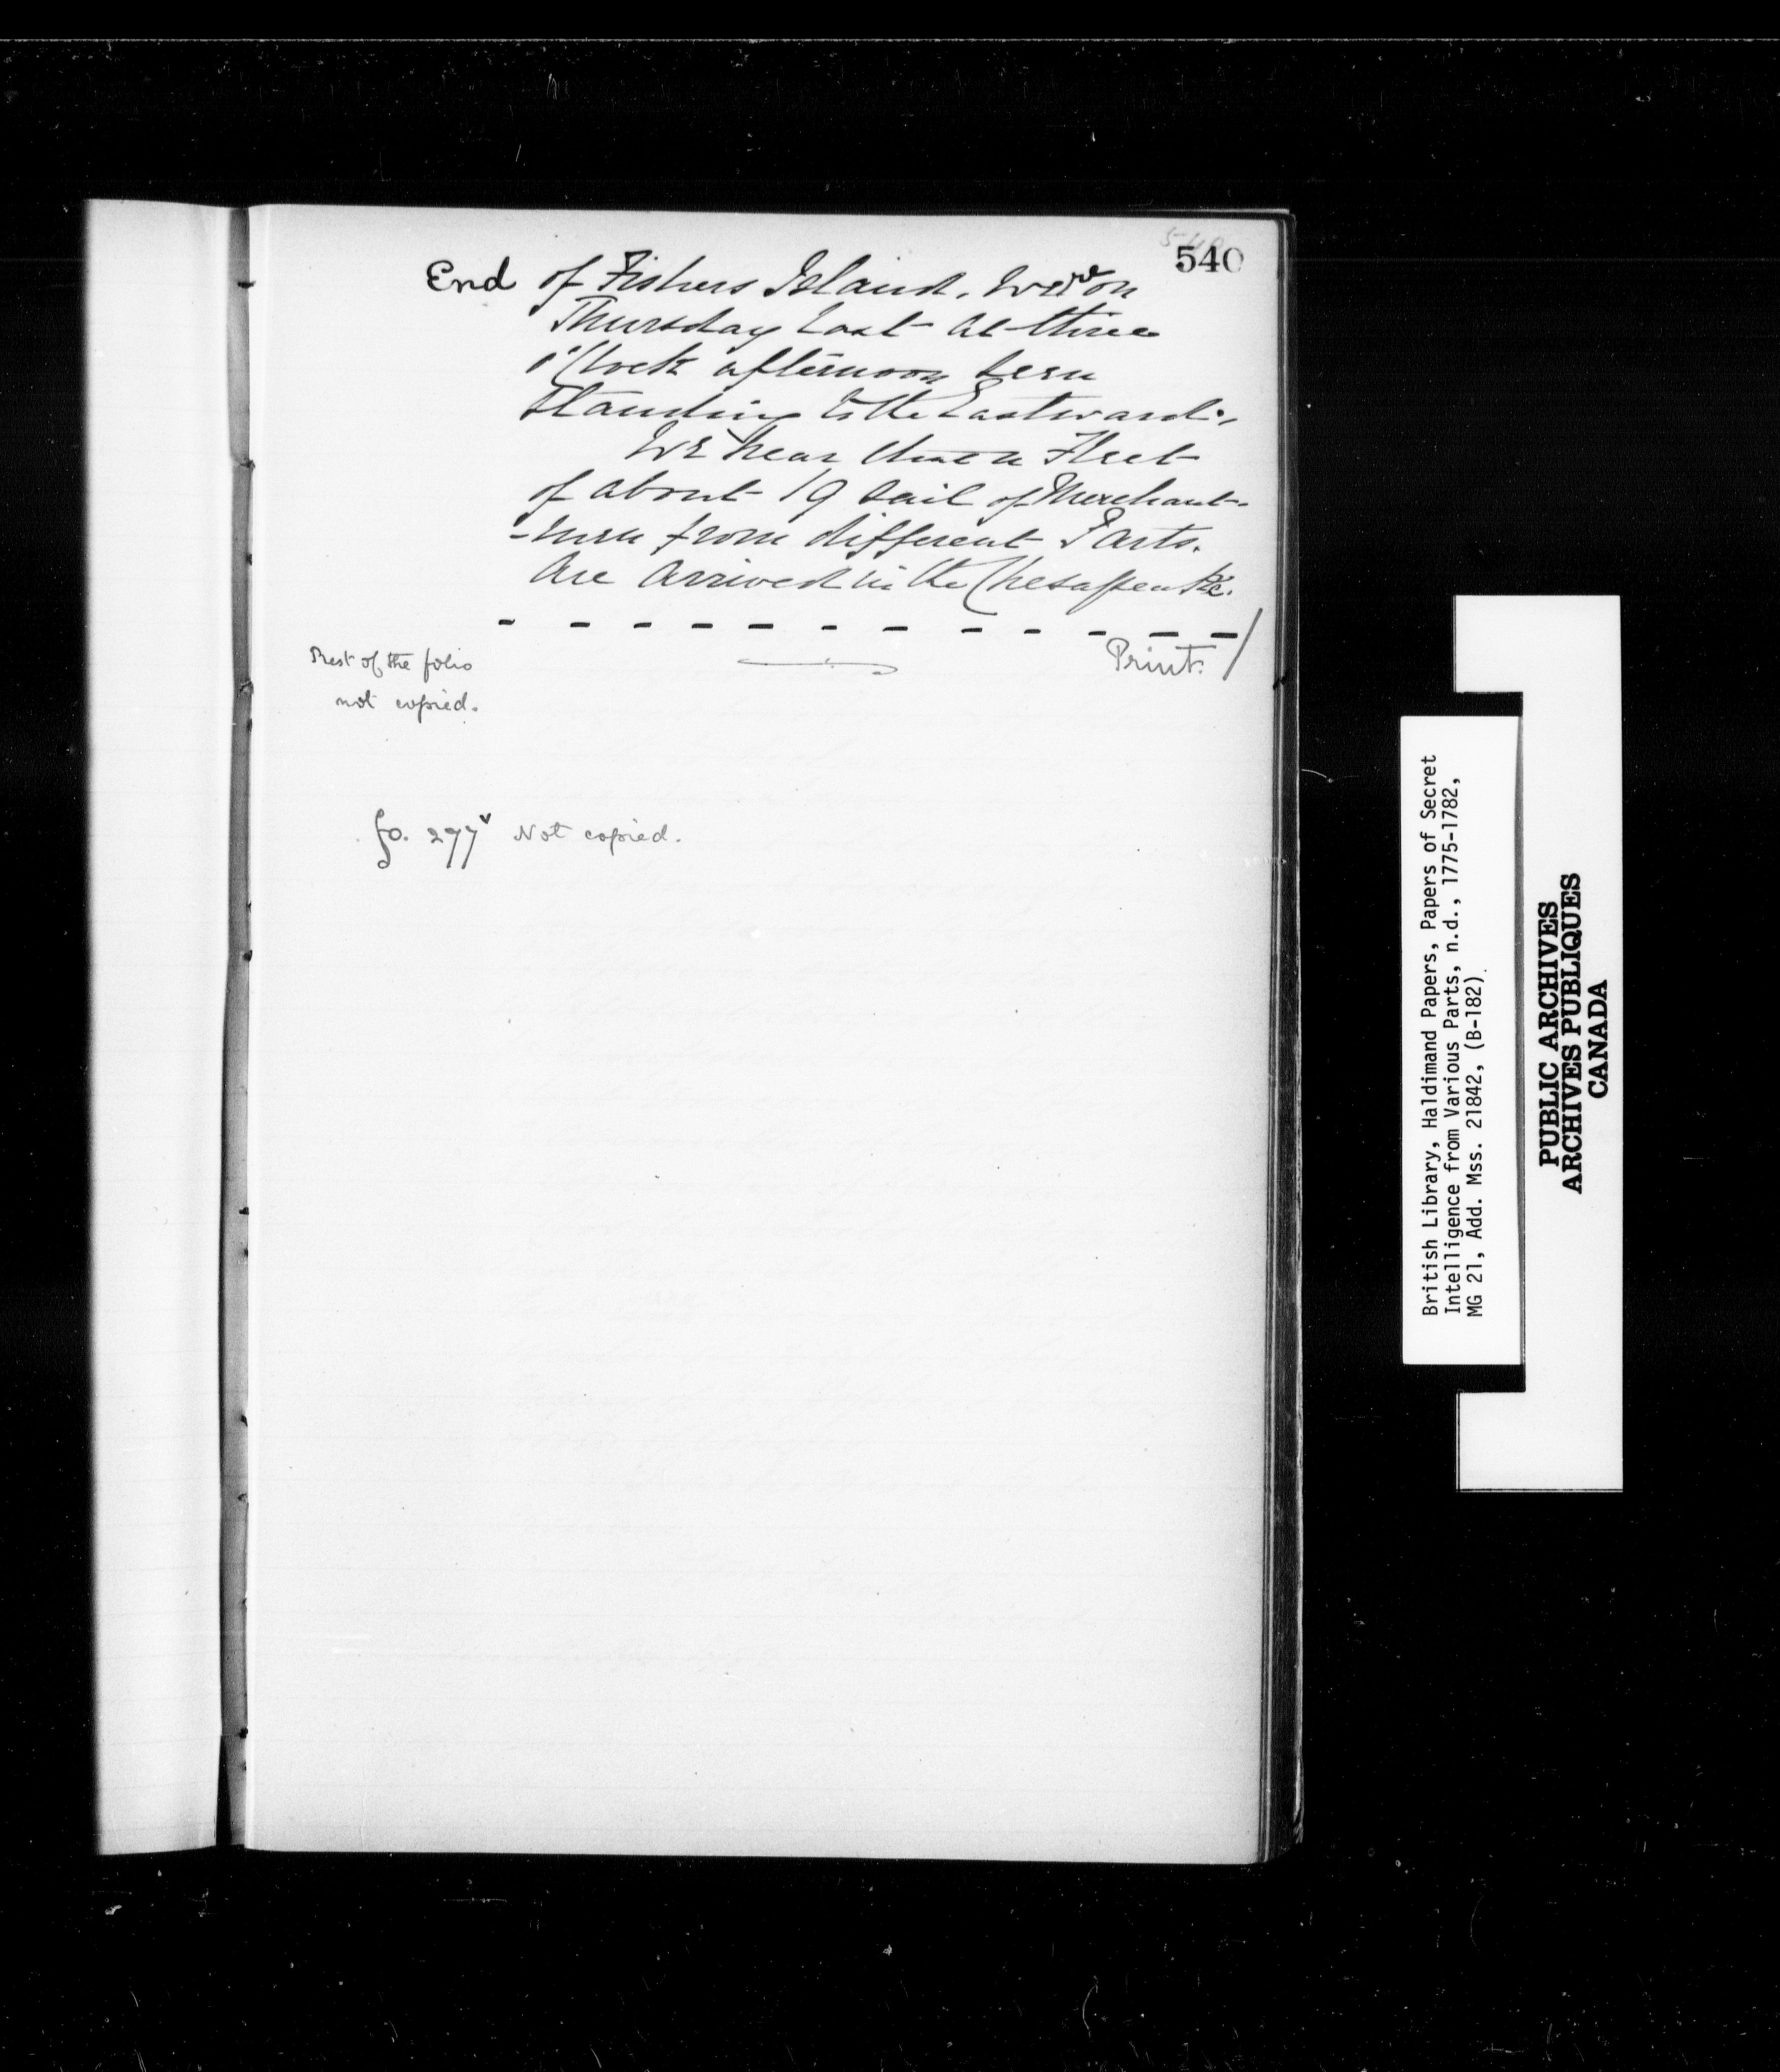 540
540
End of Fishers Island. were on
Thursday Last at three
o'Clock afternoon seen
Standing to the Eastward.
We hear that a Fleet
of about 19 sail of Merchant-
-men from different Parts.
Are arrived in the Chesapeake.
Print. /
Rest of the folio
not copied.
fo. 297v Not copied.
British Library, Haldimand Papers, Papers of Secret
Intelligence from Various Parts, n.d., 1775-1782,
MG 21, Add. Mss. 21842, (B-182)
PUBLIC ARCHIVES
ARCHIVES PUBLIQUES
CANADA